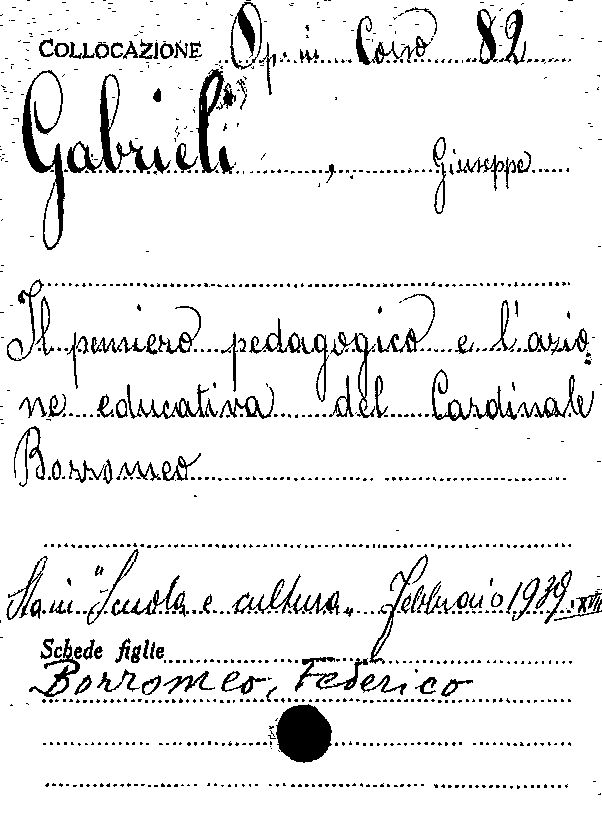 COLLOCAZIONE Op. in Corso 82
Gabrieli, Giuseppe
Il pensiero pedagogico e l'azio=
ne educativa del Cardinale
Borromeo
Sta in "Scuola e cultura" Febbraio 1939. XVII
Schede figlie
Borromeo, Federico